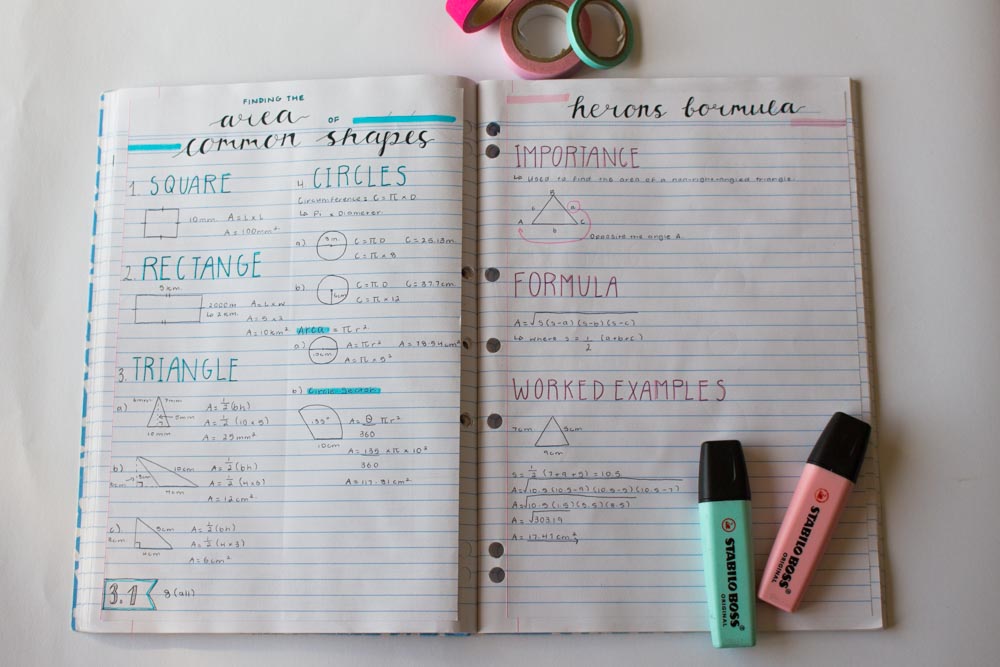 FINDING THE
area OF
common shapes
1. SQUARE
10mm A = L x L
A = 100mm²
2. RECTANGE
5km
2000m A = L x W
↳ 2km A = 5 x 2
A = 10km²
3. TRIANGLE
a) A = ½(bh)
A = ½(10 x 5)
10mm A = 25mm²
b) 10cm A = ½(bh)
4cm
A = 12cm²
c) 5cm A = ½(bh)
4cm A = ½(4 x 3)
A = 6cm²
3.1 8(all)
4. CIRCLES
Circumference: C = π x D
↳ Pi x Diameter
a) 8m C = πD C = 25.13m
C = π x 8
b) 6cm C = πD C = 37.7cm
C = π x 12
Area = πr²
a) 10cm A = πr² A = 78.54cm²
A = π x 5²
b) Circle Sector
135° A = θ/360 πr²
10cm A = 135/360 x π x 10²
A = 117.81cm²
herons formula
IMPORTANCE
↳ Used to find the area of a non-right-angled triangle.
B
c a
A b C
Opposite the angle A.
FORMULA
A = √s(s-a)(s-b)(s-c)
↳ where s = ½ (a+b+c)
WORKED EXAMPLES
7cm 5cm
9cm
s = ½ (7+9+5) = 10.5
A = √10.5(10.5-9)(10.5-5)(10.5-7)
A = √303.19
A = 17.41cm²
STABILO BOSS
ORIGINAL
STABILO BOSS
ORIGINAL